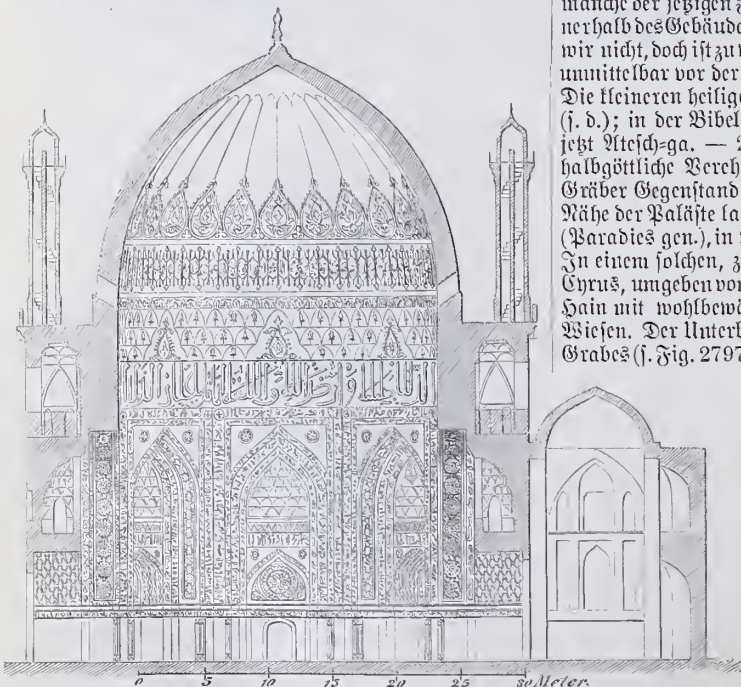 manche der jetzigen
nerhalb des Gebäude
wir nicht, doch ist zu
unmittelbar vor der
Die kleineren heilige
(s. d.); in der Bibel
jetzt Atesch-ga. —
halbgöttliche Vereh
Gräber Gegenstand
Nähe der Paläste la
(Paradies gen.), in
In einem solchen, z
Cyrus, umgeben von
Hain mit wohlbewä
Wiesen. Der Unterb
Grabes (s. Fig. 2797
0 5 10 15 20 25 30 Meter.